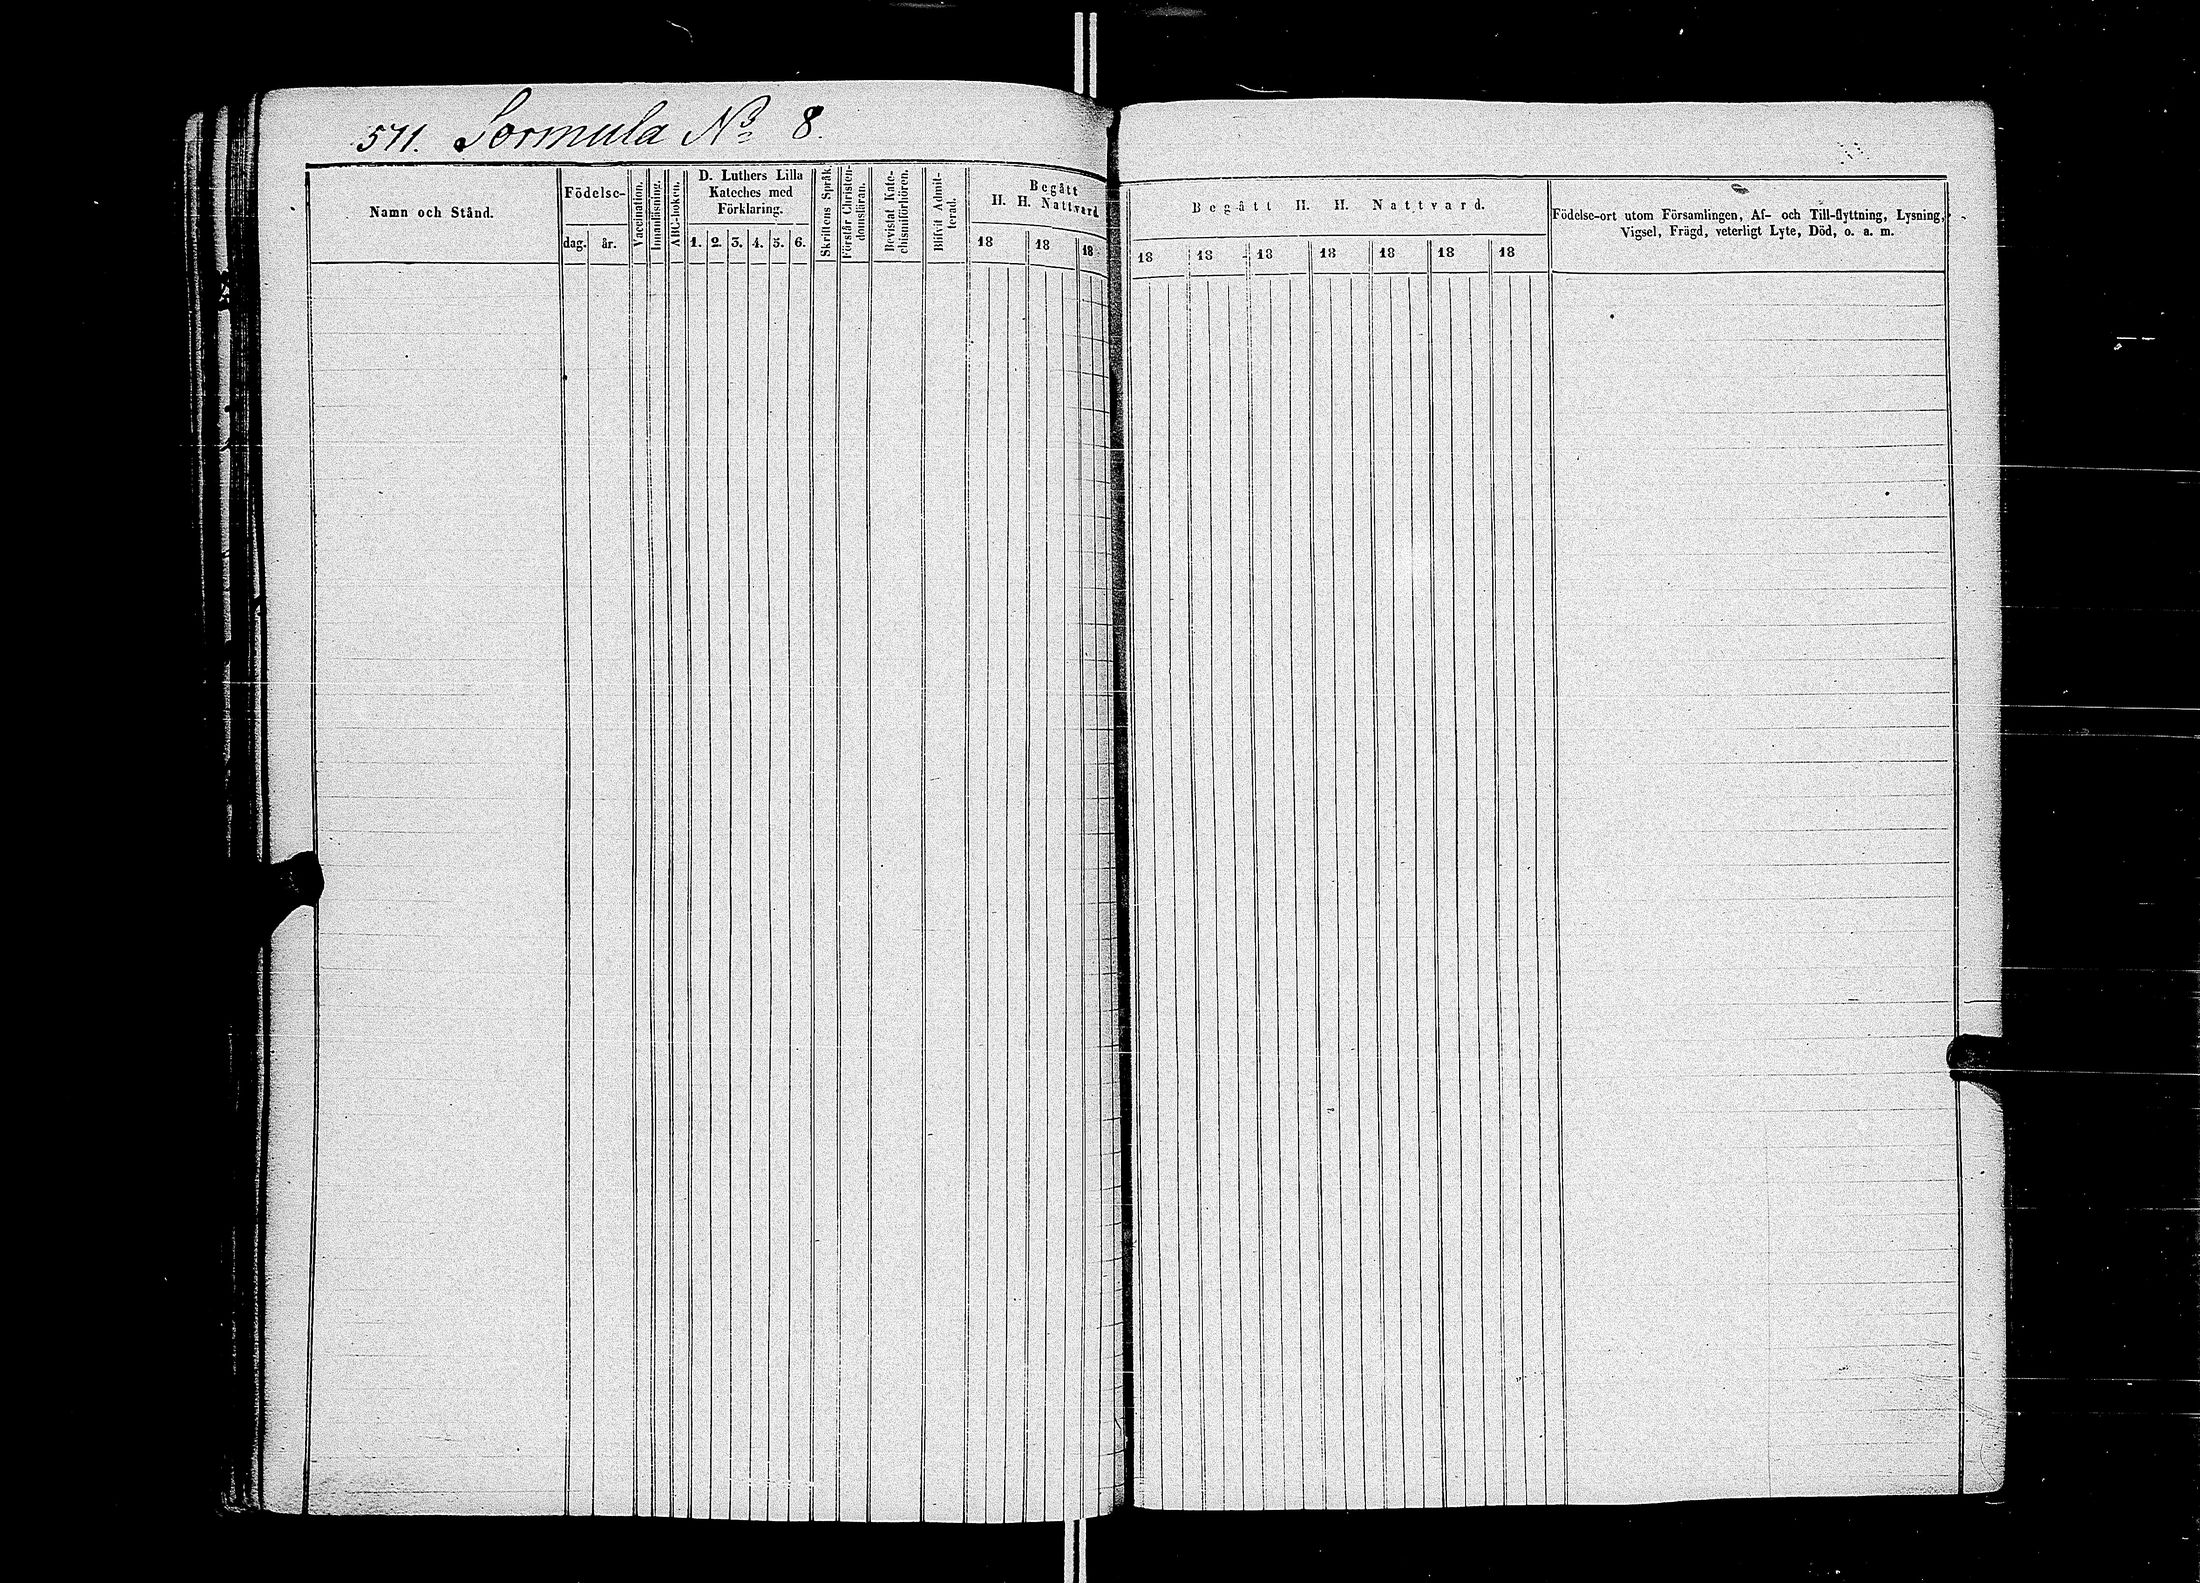 571. Sormula No 8.
Namn och Stånd.
Födelse-
dag. år.
Vaccination.
Innanläsning.
ABC-boken.
D. Luthers Lilla
Kateches med
Förklaring.
1. 2. 3. 4. 5. 6.
Skriftens Språk.
Förstår Christen-
domsläran.
Bevistat Kate-
chismiförhören.
Blifvit Admit-
terad.
Begått
H. H. Nattvard.
18 18 18
Begått H. H. Nattvard.
18 18 18 18 18 18 18
Födelse-ort utom Församlingen, Af- och Till-flyttning, Lysning,
Vigsel, Frägd, veterligt Lyte, Död, o. a. m.